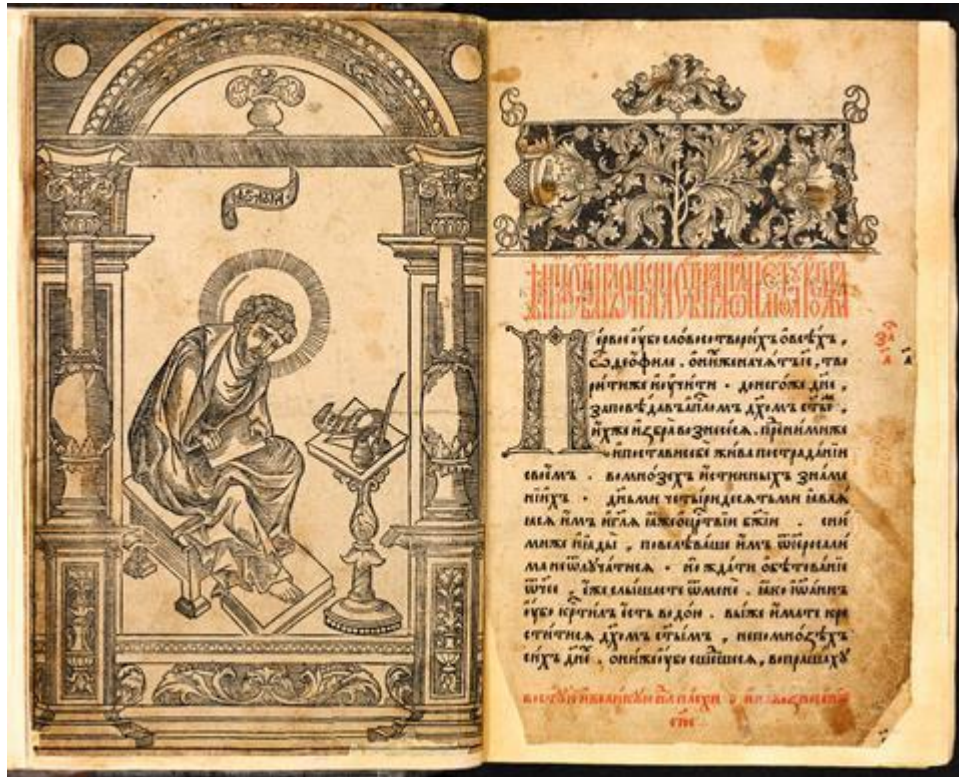 Пе́рвое ᲂу҆́бо сло́во сотвори́хъ ѡ҆ всѣ́хъ,
ѽ део́филе. ѡ҆ ни́хже нача́тъ і҆с, тво
ри́тиже и҆ ᲂу҆чи́ти. до него́же дн҃е,
заповѣ́давъ а҆пⷭ҇ломъ дх҃омъ ст҃ы,
и҆́хже и҆ꙁбра̀ воꙁнесе́сѧ. пре́д ни́миже
и҆ поста́ви себѐ жи́ва по страда́нїи
свое́мъ. во мно́ꙁехъ и҆́стинныхъ ꙁна́ме
нїихъ. дн҃ьми четы́ридесѧтьми ꙗ҆влѧ́
ꙗсѧ и҆́мъ и҆ гл҃ѧ ꙗ҆́же ѡ҆ црⷭ҇твїи бж҃їи. с ни́
миже и҆ ꙗ҆ды̀, повелѣва́ше и҆́мъ ѿ і҆ерⷭ҇али́
ма не ѿлуча́тисѧ. но жда́ти ѡ҆бѣтова́нїе
ѿч҃ее, е҆́же слы́шасте ѿ менѐ. ꙗ҆́ко і҆ѡ҆а́ннъ
ᲂу҆́бо крⷭ҇ти́лъ є҆́сть водо́ю. вы́же и҆́мате кре
сти́тисѧ дх҃омъ ст҃ы́мъ, не по мно́ꙁѣхъ
си́хъ дн҃е. ѻ҆ни́же ᲂу҆́бо сше́дшесѧ, вопраша́хꙋ